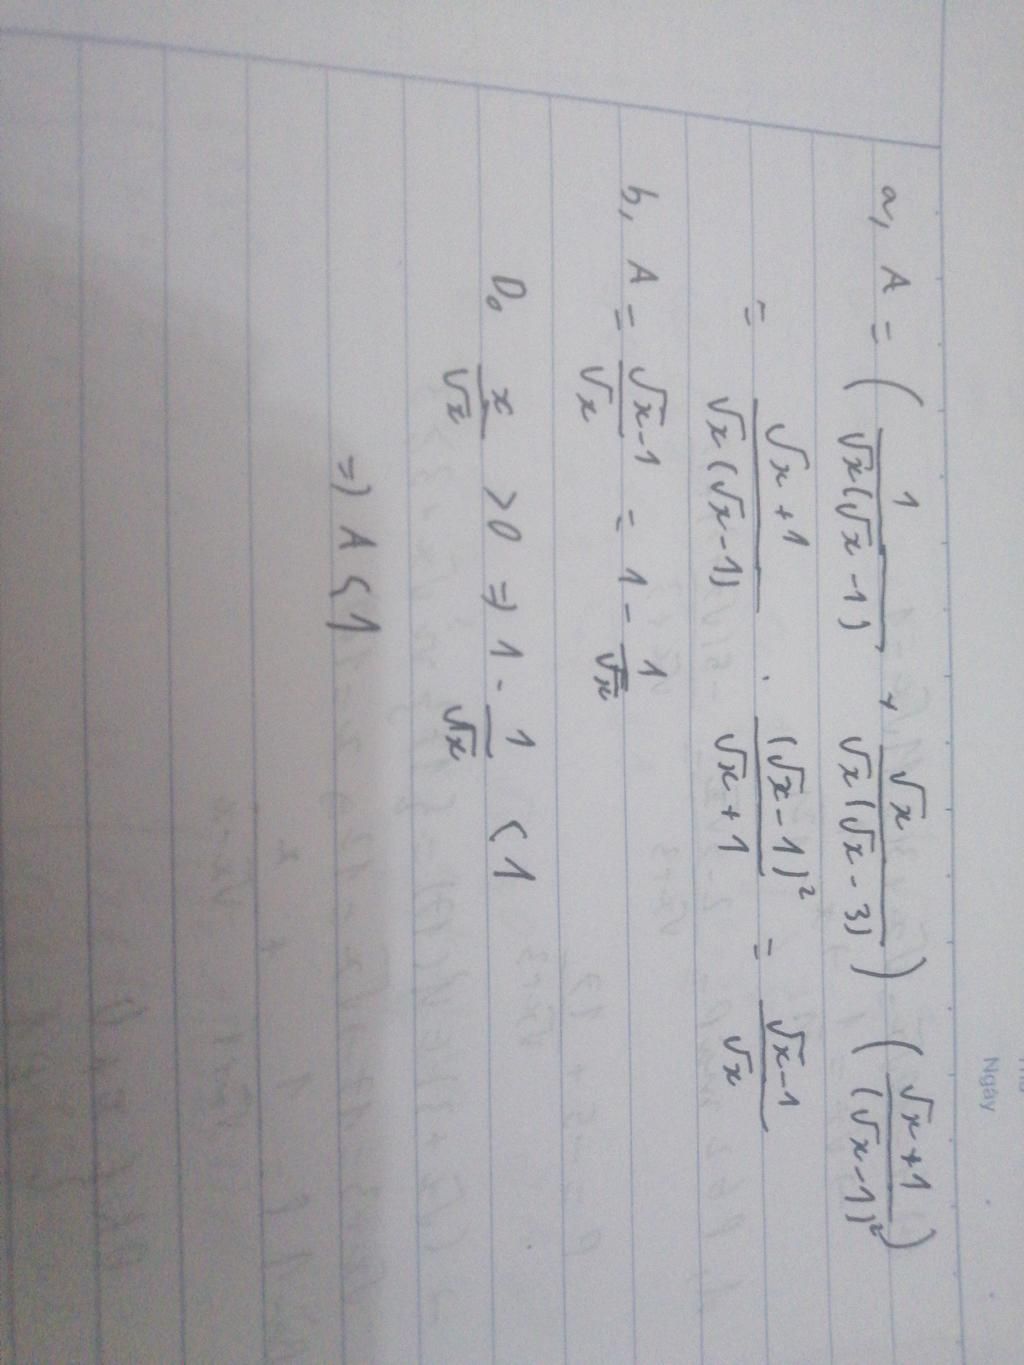 Ngày
a, A = ( 1/(√x(√x - 1)) + √x/(√x(√x - 3)) ) ( (√x + 1)/(√x - 1)² )
= (√x + 1)/(√x(√x - 1)) . (√x - 1)²/(√x + 1) = (√x - 1)/√x
b, A = (√x - 1)/√x = 1 - 1/√x
Do x/√x > 0 => 1 - 1/√x < 1
=> A < 1